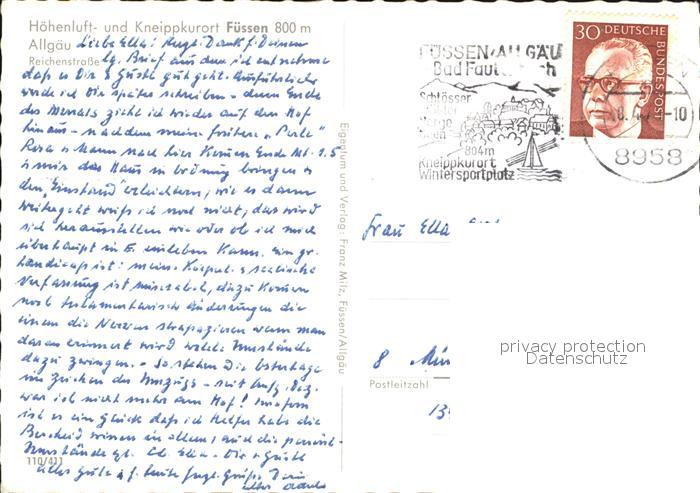 Höhenluft- und Kneippkurort Füssen 800 m
Allgäu
Reichenstraße
Liebe Ella! Herzl. Dank f. Deinen
lg. Brief aus dem ich entnehme
daß es Dir & Gustl gut geht. Ausführlicher
werde ich Dir später schreiben - denn Ende
des Monats ziehe ich wieder auf den Hof
hinaus - nachdem meine frühere "Perle"
Rosa & Mann nach hier kommen Ende Mt. 1.5
& mir das Haus in Ordnung bringen &
den "Einstand" erleichtern, wie es dann
weitergeht weiß ich noch nicht, das wird
sich herausstellen wie oder ob ich mich
überhaupt in E. einleben kann. Ein gr.
Handicap ist: meine Körperl. & seelische
Verfassung ist miserabel, dazu kommen
noch testamentarische Änderungen die
einem die Nerven strapazieren wenn man
daran erinnert wird welche Umstände
dazu zwingen. - So stehen die Ostertage
im Zeichen des Umzugs - seit Anfg. Dez.
war ich nicht mehr am Hof! Insofern
ist es ein Glück daß ich Helfer habe die
Bescheid wissen in allem, auch die persönl.
Umstände
Ella - Dir & Gustl
alles Gute & f. heute herzl. Grüße Deine
110/411
Eigentum und Verlag: Franz Milz, Füssen/Allgäu
FÜSSEN·ALLGÄU
Bad Faulenbach
Schlösser
Berge
Seen
804m
Kneippkurort
Wintersportplatz
30 DEUTSCHE
BUNDESPOST
-10
8958
Frau Ella
8 Mün
Postleitzahl
13
privacy protection
Datenschutz